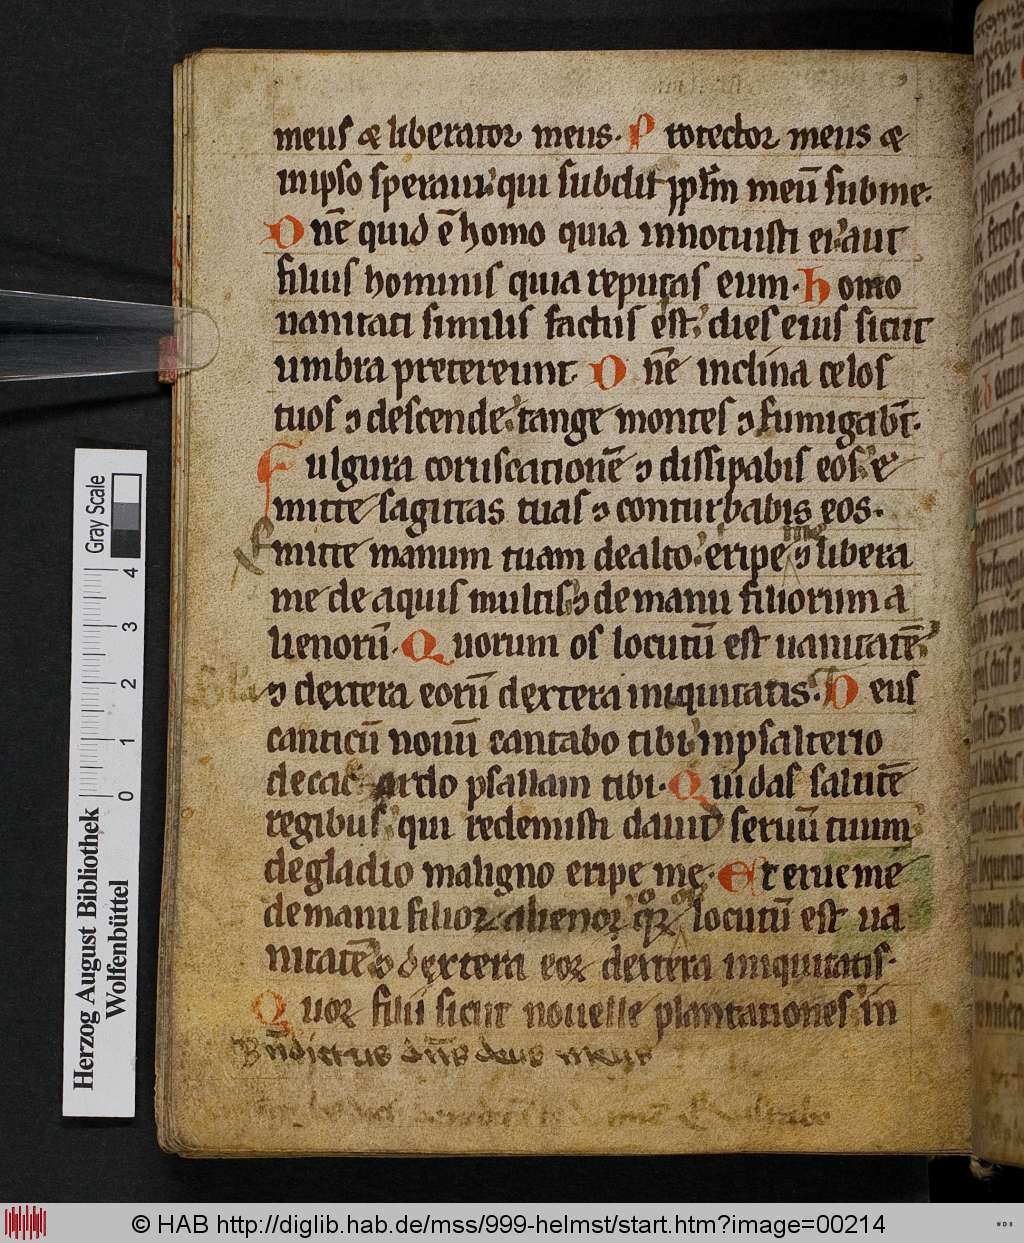 meus & liberator meus. P rotector meus &
inipso speraui: qui subdit ppl̄m meū subme.
D nē quid ē homo quia innotuisti ei: aut
filius hominis quia reputas eum. h omo
uanitati similis factus est: dies eius sicut
umbra pretereunt. D nē inclina celos
tuos ⁊ descende: tange montes ⁊ fumigabt̄.
F ulgura coruscationē ⁊ dissipabis eos: e
mitte sagittas tuas ⁊ conturbabis eos.
E mitte manum tuam dealto: eripe me ⁊ libera
me de aquis multis: ⁊ de manu filiorum a
lienorū. Q uorum os locutū est uanitatē:
⁊ dextera eorū dextera iniquitatis. D eus
canticū nouū cantabo tibi: inpsalterio
decac ordo psallam tibi. Q uidas salutē
regibus: qui redemisti dauid seruū tuum:
degladio maligno eripe me. E t erue me
demanu filioꝝ alienoꝝ qͦꝝ os locutū est ua
nitatē: ⁊ dextera eoꝝ dextera iniquitatis.
Q uoꝝ filii sicut nouelle plantationes: in
Bn̄dictus dn̄s deus meus
Herzog August Bibliothek
Wolfenbüttel
0 1 2 3 4
Gray Scale
© HAB http://diglib.hab.de/mss/999-helmst/start.htm?image=00214